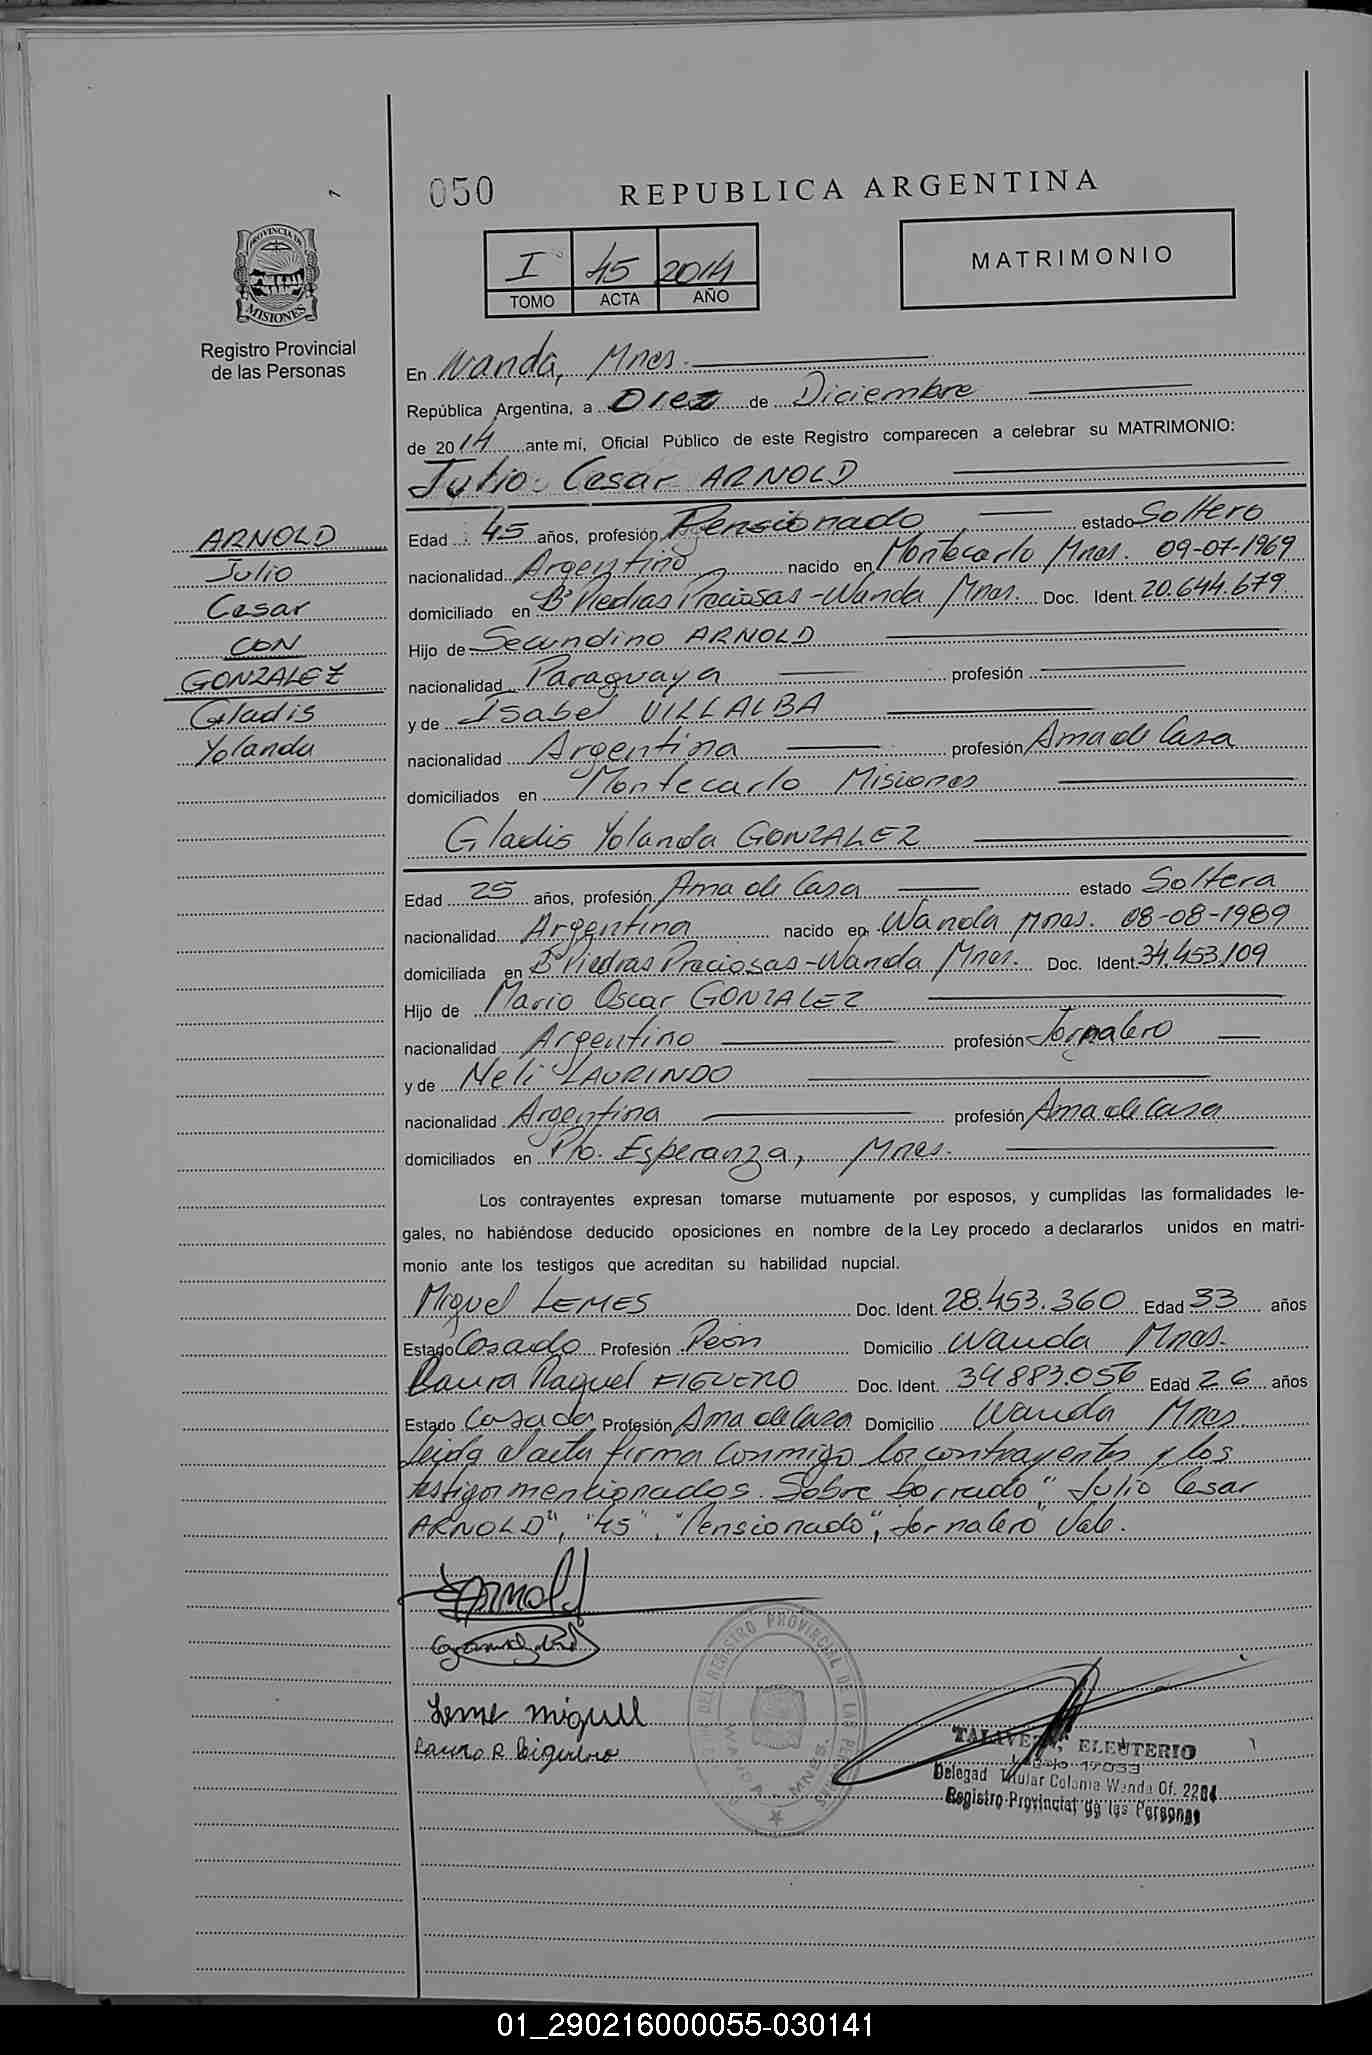 050
REPUBLICA ARGENTINA
PROVINCIA DE
MISIONES
Registro Provincial
de las Personas
I 45 2014
TOMO ACTA AÑO
MATRIMONIO
En Wanda, Mnes.
República Argentina, a Diez de Diciembre
de 2014 ante mí, Oficial Público de este Registro comparecen a celebrar su MATRIMONIO:
Julio Cesar ARNOLD
ARNOLD
Julio
Cesar
CON
GONZALEZ
Gladis
Yolanda
Edad 45 años, profesión Pensionado estado Soltero
nacionalidad Argentino nacido en Montecarlo Mnes. 09-07-1969
domiciliado en Bº Piedras Preciosas-Wanda Mnes. Doc. Ident. 20.644.679.
Hijo de Secundino ARNOLD
nacionalidad Paraguaya profesión
y de Isabel VILLALBA
nacionalidad Argentina profesión Ama de Casa
domiciliados en Montecarlo Misiones
Gladis Yolanda GONZALEZ
Edad 25 años, profesión Ama de Casa estado Soltera
nacionalidad Argentina nacido en Wanda Mnes. 08-08-1989
domiciliada en Bº Piedras Preciosas-Wanda Mnes. Doc. Ident. 34.453.109
Hijo de Mario Oscar GONZALEZ
nacionalidad Argentino profesión Jornalero
y de Neli LAURINDO
nacionalidad Argentina profesión Ama de Casa
domiciliados en Pto. Esperanza, Mnes.
Los contrayentes expresan tomarse mutuamente por esposos, y cumplidas las formalidades le-
gales, no habiéndose deducido oposiciones en nombre de la Ley procedo a declararlos unidos en matri-
monio ante los testigos que acreditan su habilidad nupcial.
Miguel LEMES Doc. Ident. 28.453.360 Edad 33 años
Estado Casado Profesión Peón Domicilio Wanda Mnes.
Laura Raquel FIGUERO Doc. Ident. 34883.056 Edad 26 años
Estado Casada Profesión Ama de Casa Domicilio Wanda Mnes
Leida el acta firma conmigo los contrayentes y los
testigos mencionados. Sobre borrado "Julio Cesar
ARNOLD", "45", "Pensionado", Jornalero" Vale.
Arnold
Leme miguel
REGISTRO PROVINCIAL DE LAS
WANDA - MNES.
TALAVERA, ELEUTERIO
Legajo 17033
Delegad Titular Colonia Wanda Of. 2204
Registro Provincial de las Personas
01_290216000055-030141